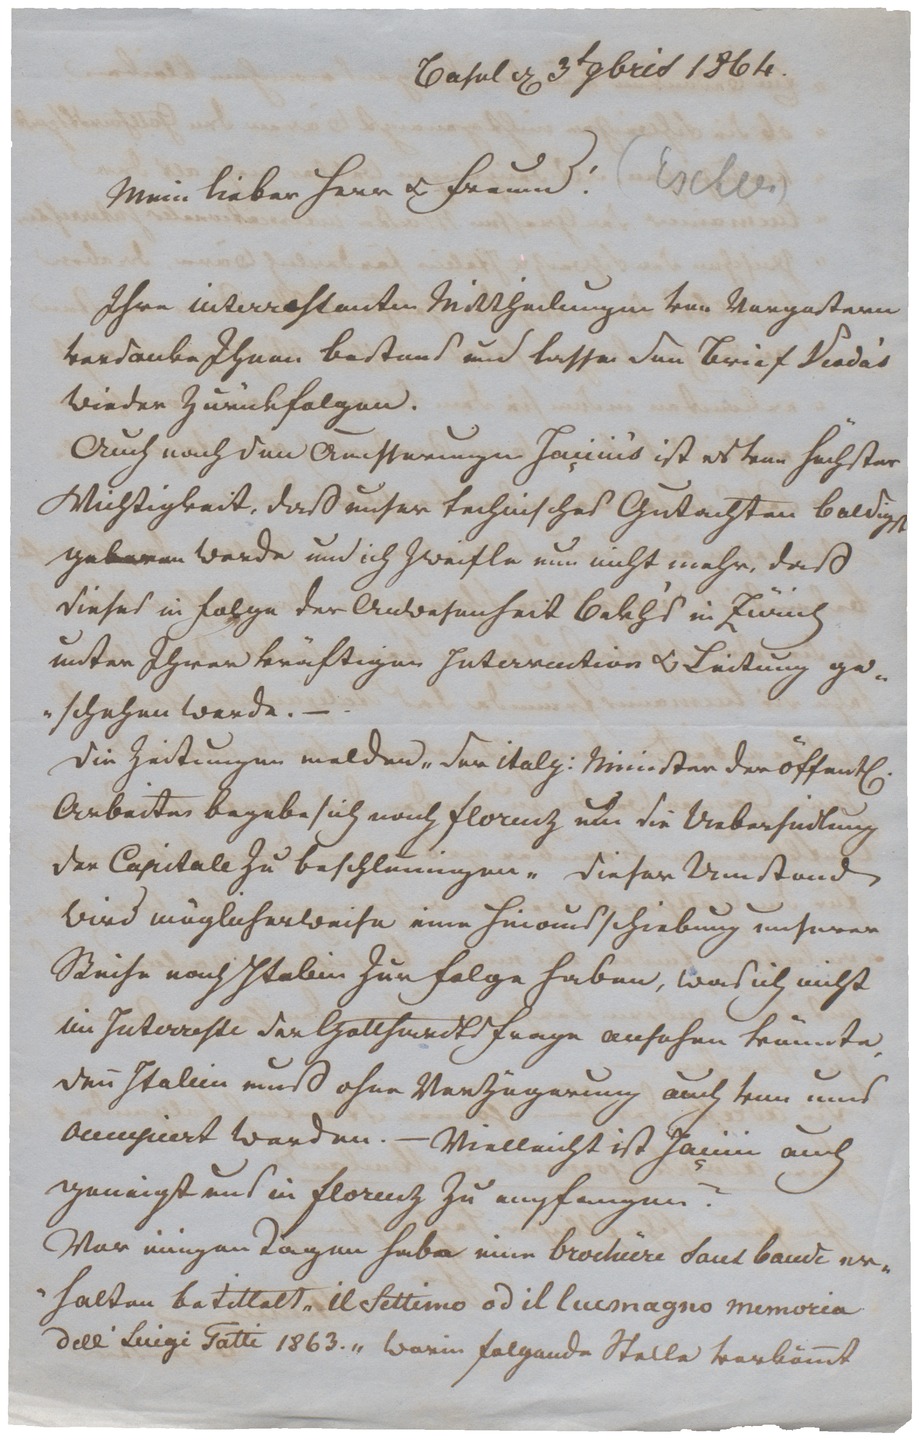 Basel d. 3t 9bris 1864.
Mein lieber Herr & Freund! (Escher)
Ihre interressanten Mittheilungen von Vorgestern
verdanke Ihnen bestens und lasse den Brief Viedas
wieder zurückfolgen.
Auch nach den Aeusserungen Jaçini's ist es von höchster
Wichtigkeit, daß unser technisches Gutachten baldigst
geboren werde und ich zweifle nun nicht mehr, daß
dieses in folge der Anwesenheit Bekh's in Zürich
unter Ihrer kräftigen Intervention & Leitung ge„
„schehen werde. —
Die Zeitungen melden „der italg: Minister der öffentl.
Arbeiten begebe sich nach Florenz um die Uebersiedlung
der Capitale zu beschleunigen„ dieser Umstand
wird möglicherweise eine Hinausschiebung unserer
Reise nach Italien zur folge haben, was ich nicht
im Interresse der Gotthardtsfrage ansehen könnte,
den̄ Italien muß ohne Verzögerung auch von uns
occupiert werden. — Vielleicht ist Jaçini auch
geneigt uns in Florenz zu empfangen?
Vor einigen Tagen habe eine brochüre sous bande er„
„halten betittelt „il Settimo od il lucmagno memoria
dell' Luigi Tatti 1863.„ worin folgende Stelle vorkom̄t